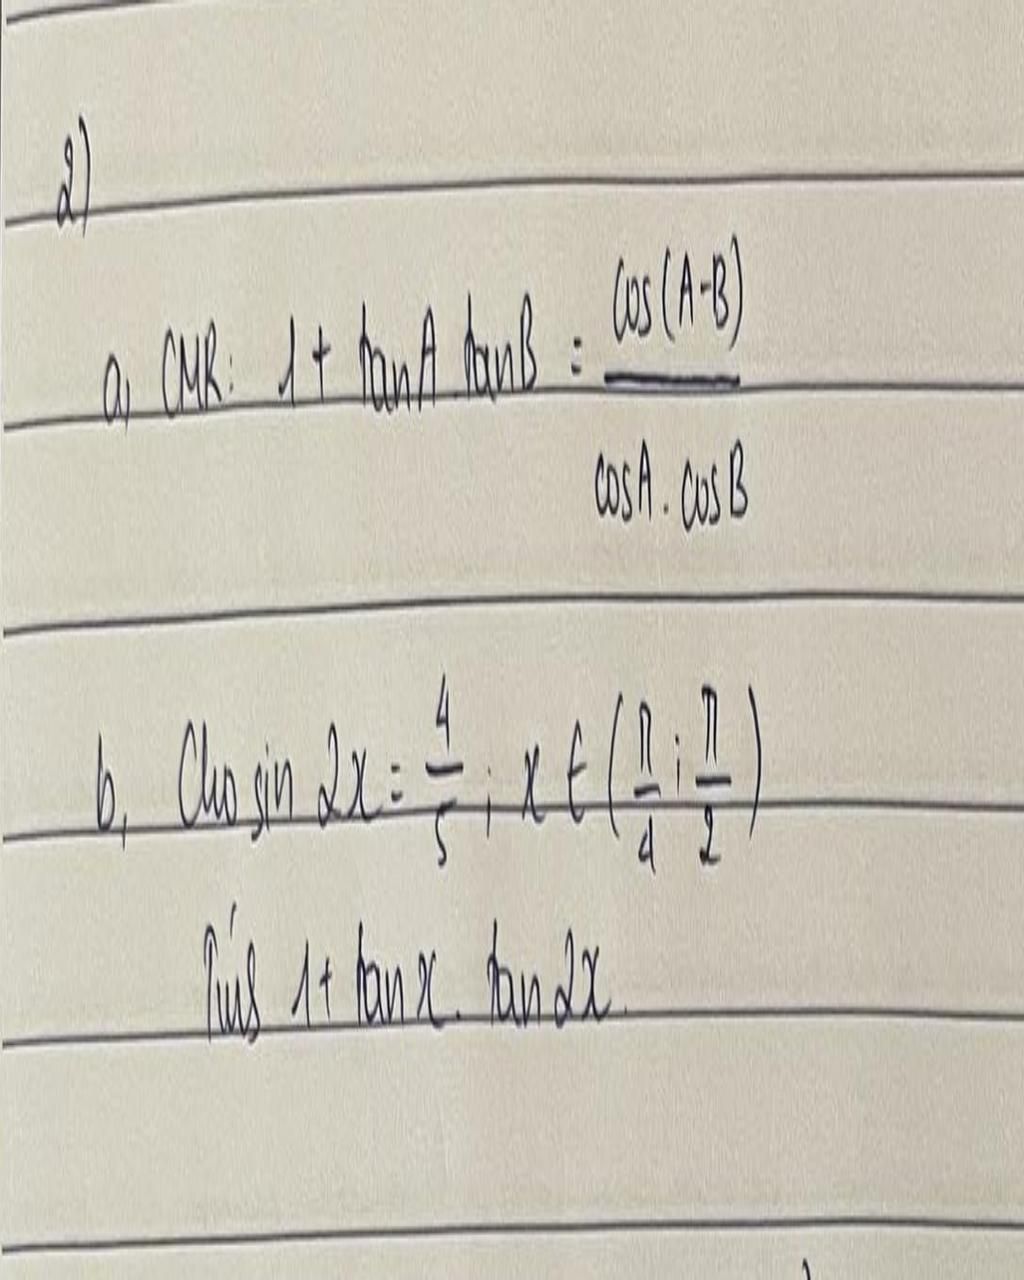 2)
a, CMR: 1 + tanA.tanB = cos(A-B) / cosA.cosB
b, Cho sin 2x = 4/5 ; x ∈ (π/4 ; π/2)
Tính 1 + tan x. tan 2x.